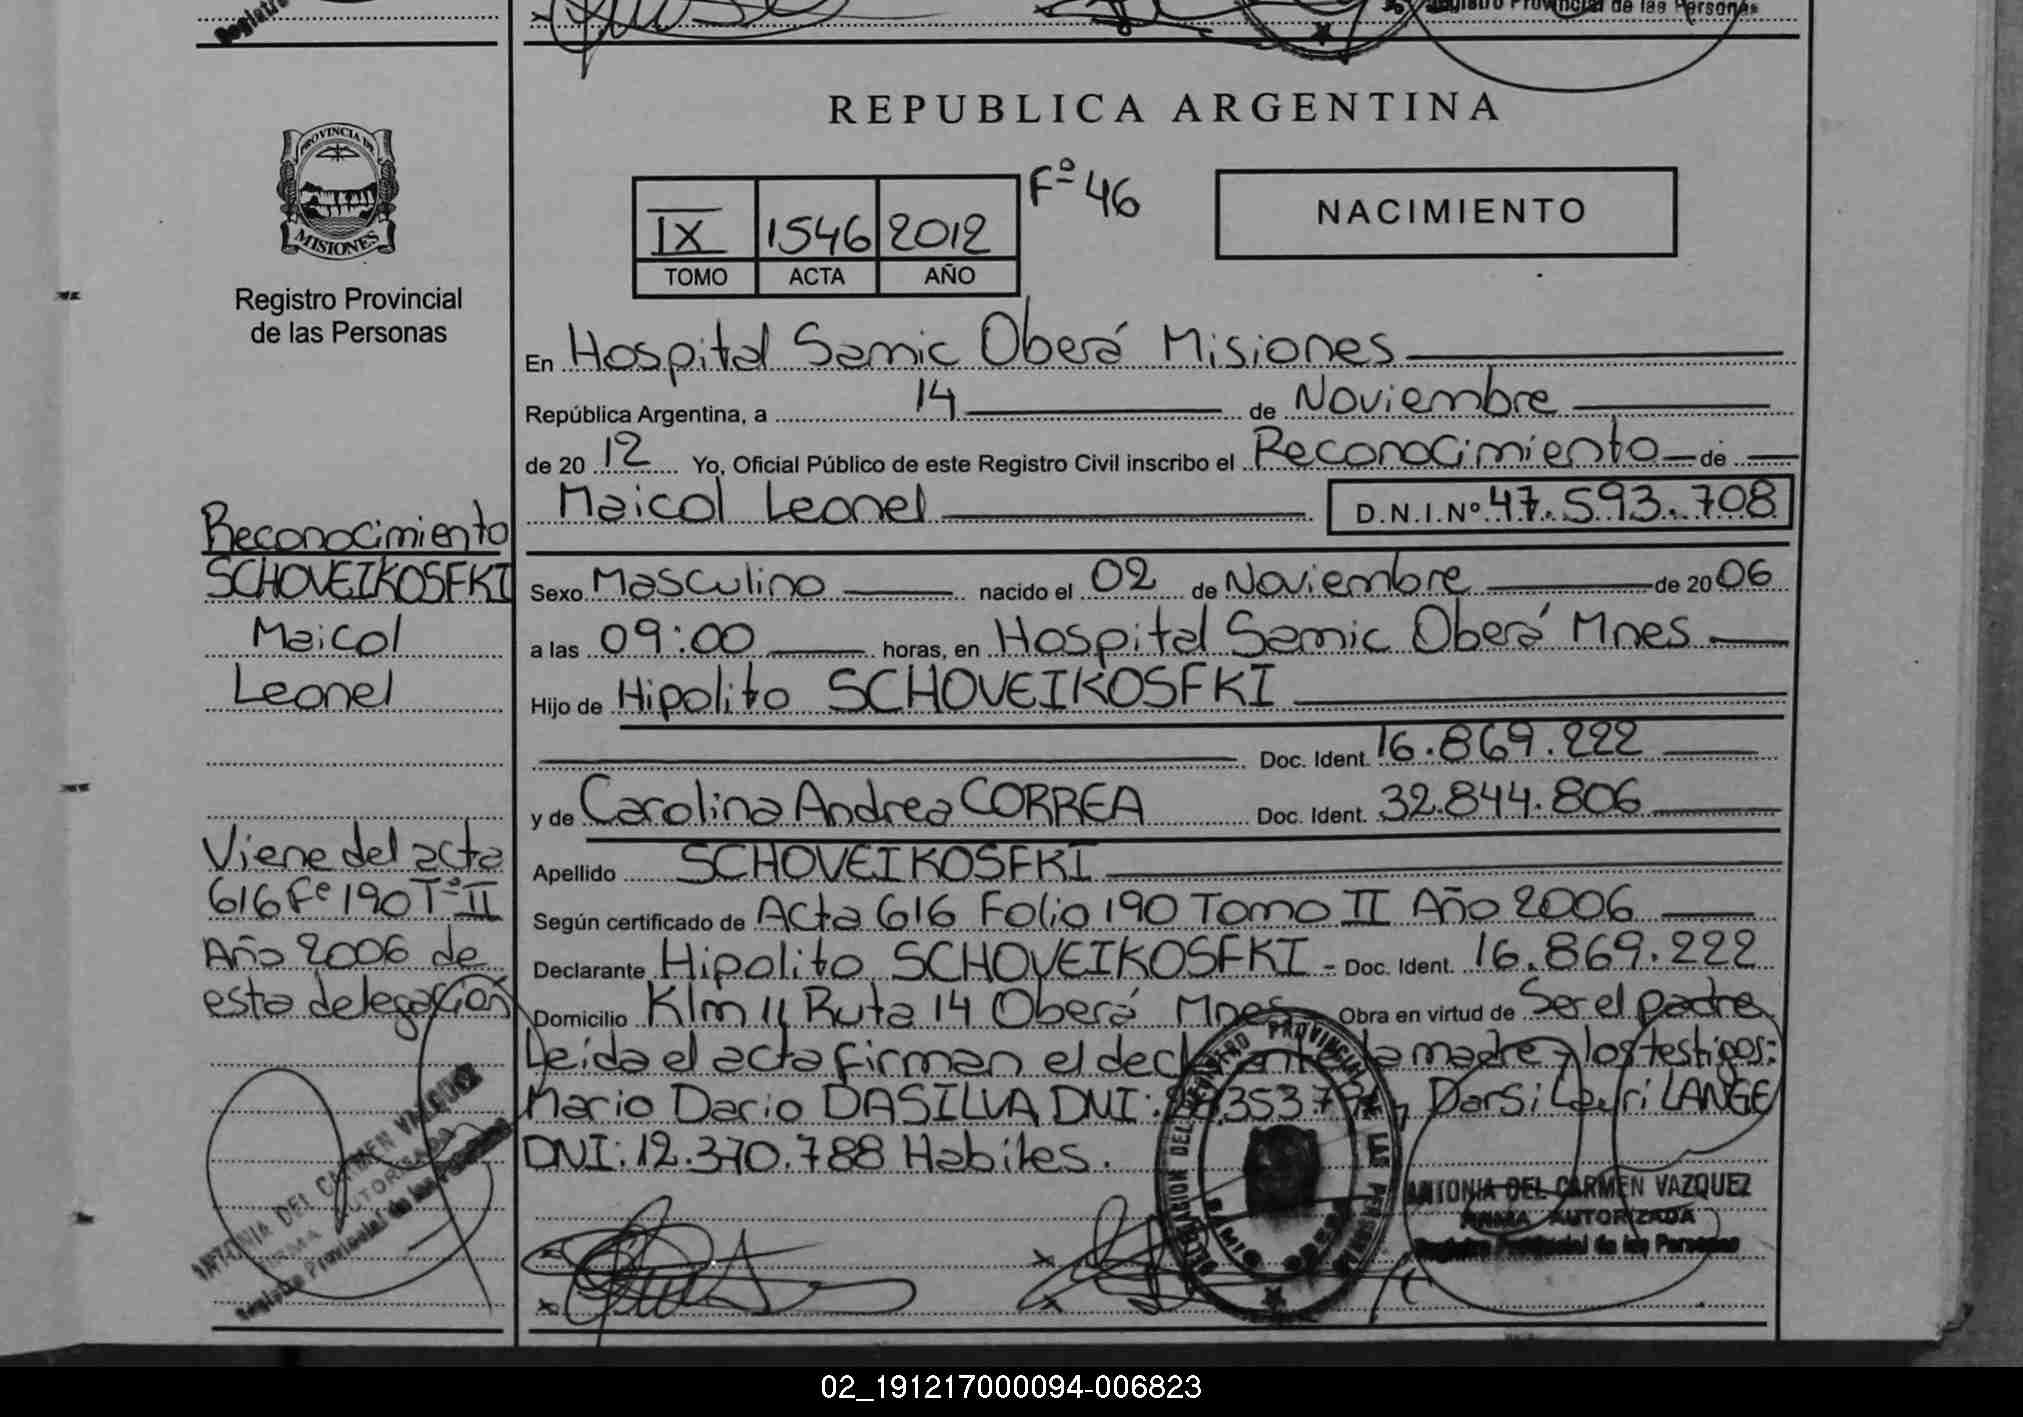 Registro Provincial de las Personas
REPUBLICA ARGENTINA
PROVINCIA DE
MISIONES
Registro Provincial
de las Personas
IX 1546 2012 Fº 46
TOMO ACTA AÑO
NACIMIENTO
En Hospital Samic Oberá Misiones
República Argentina, a 14 de Noviembre
de 2012 Yo, Oficial Público de este Registro Civil inscribo el Reconocimiento de
Maicol Leonel D.N.I.Nº 47.593.708
Sexo Masculino nacido el 02 de Noviembre de 2006
a las 09:00 horas, en Hospital Samic Oberá Mnes
Hijo de Hipolito SCHOVEIKOSFKI
Doc. Ident. 16.869.222
y de Carolina Andrea CORREA Doc. Ident. 32.844.806
Apellido SCHOVEIKOSFKI
Según certificado de Acta 616 Folio 190 Tomo II Año 2006
Declarante Hipolito SCHOVEIKOSFKI - Doc. Ident. 16.869.222
Domicilio Klm 11 Ruta 14 Oberá Mnes Obra en virtud de Ser el padre
Leída el acta firman el declarante la madre y los testigos:
Mario Dario DASILVA DNI: Darsi Lauri LANGE
DNI: 12.370.788 Habiles.
ANTONIA DEL CARMEN VAZQUEZ
FIRMA AUTORIZADA
Registro Provincial de las Personas
Reconocimiento
SCHOVEIKOSFKI
Maicol
Leonel
Viene del acta
616 Fº 190 Tº II
Año 2006 de
esta delegación
ANTONIA DEL CARMEN VAZQUEZ
FIRMA AUTORIZADA
Registro Provincial de las Personas
02_191217000094-006823